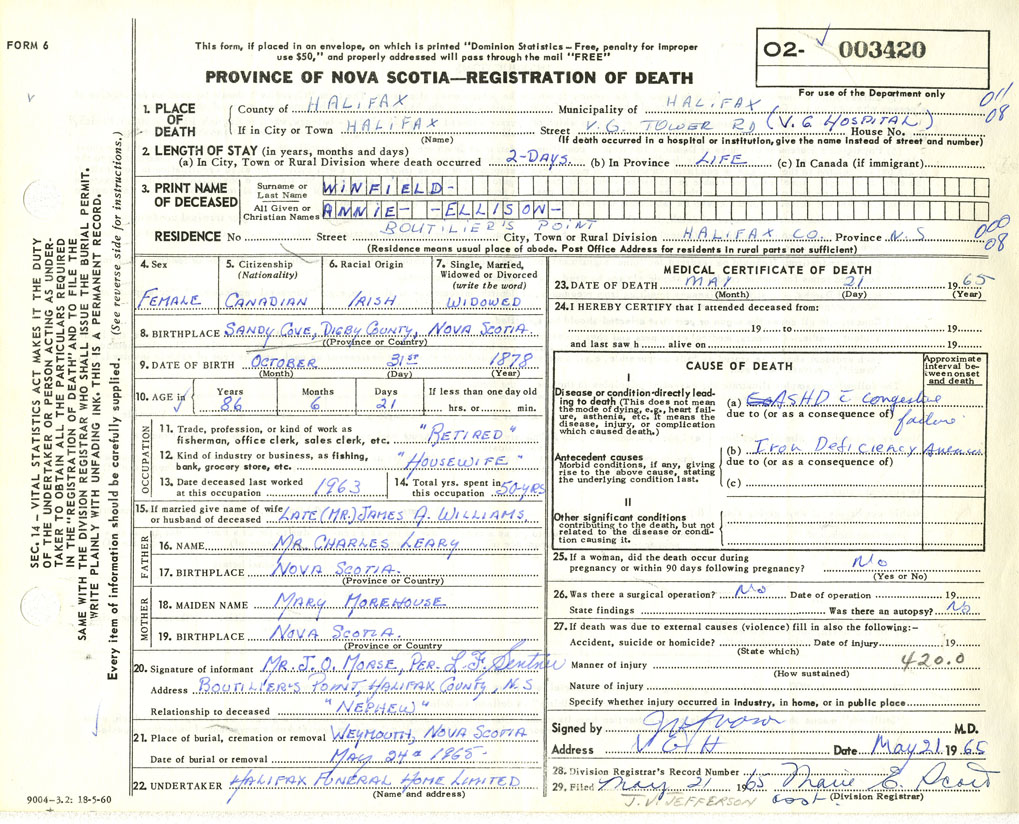 FORM 6
This form, if placed in an envelope, on which is printed "Dominion Statistics – Free, penalty for improper
use $50," and properly addressed will pass through the mail "FREE"
PROVINCE OF NOVA SCOTIA—REGISTRATION OF DEATH
O2- 003420
For use of the Department only
011
08
1. PLACE OF DEATH
County of HALIFAX Municipality of HALIFAX
If in City or Town HALIFAX Street V.G. TOWER RD (V.G. HOSPITAL) House No.
(Name) (If death occurred in a hospital or institution, give the name instead of street and number)
2. LENGTH OF STAY (in years, months and days)
(a) In City, Town or Rural Division where death occurred 2-DAYS. (b) In Province LIFE (c) In Canada (if immigrant)
3. PRINT NAME OF DECEASED
Surname or Last Name WINFIELD-
All Given or Christian Names ANNIE- -ELLISON-
RESIDENCE No Street BOUTILIER'S POINT City, Town or Rural Division HALIFAX CO. Province N.S
000
08
(Residence means usual place of abode. Post Office Address for residents in rural parts not sufficient)
4. Sex
FEMALE
5. Citizenship (Nationality)
CANADIAN
6. Racial Origin
IRISH
7. Single, Married, Widowed or Divorced (write the word)
WIDOWED
8. BIRTHPLACE SANDY COVE, DIGBY COUNTY, NOVA SCOTIA
(Province or Country)
9. DATE OF BIRTH OCTOBER 31ST 1878
(Month) (Day) (Year)
10. AGE in Years Months Days If less than one day old
86 6 21 hrs. or min.
OCCUPATION
11. Trade, profession, or kind of work as fisherman, office clerk, sales clerk, etc. "RETIRED"
12. Kind of industry or business, as fishing, bank, grocery store, etc. "HOUSEWIFE"
13. Date deceased last worked at this occupation 1963
14. Total yrs. spent in this occupation 50-YRS
15. If married give name of wife or husband of deceased LATE (MR.) JAMES A. WILLIAMS.
FATHER
16. NAME MR. CHARLES LEARY
17. BIRTHPLACE NOVA SCOTIA.
(Province or Country)
MOTHER
18. MAIDEN NAME MARY MOREHOUSE
19. BIRTHPLACE NOVA SCOTIA.
(Province or Country
20. Signature of informant MR. J. O. MORSE, PER. L F
Address BOUTILIER'S POINT, HALIFAX COUNTY, N.S
Relationship to deceased "NEPHEW"
21. Place of burial, cremation or removal WEYMOUTH, NOVA SCOTIA
Date of burial or removal MAY 24th 1965-
22. UNDERTAKER HALIFAX FUNERAL HOME LIMITED
(Name and address)
MEDICAL CERTIFICATE OF DEATH
23. DATE OF DEATH MAY 21 1965
(Month) (Day) (Year)
24. I HEREBY CERTIFY that I attended deceased from:
19 to 19
and last saw h alive on 19
CAUSE OF DEATH
Approximate interval between onset and death
I
Disease or condition directly leading to death (This does not mean the mode of dying, e.g., heart failure, asthenia, etc. It means the disease, injury, or complication which caused death.)
(a) ASHD c̄ congestive
due to (or as a consequence of) failure
Antecedent causes
Morbid conditions, if any, giving rise to the above cause, stating the underlying condition last.
(b) Iron Deficiency Anemia
due to (or as a consequence of)
(c)
II
Other significant conditions
contributing to the death, but not related to the disease or condition causing it.
25. If a woman, did the death occur during
pregnancy or within 90 days following pregnancy? No
(Yes or No)
26. Was there a surgical operation? No Date of operation 19
State findings Was there an autopsy? No
27. If death was due to external causes (violence) fill in also the following:–
Accident, suicide or homicide? Date of injury 19
(State which)
Manner of injury 420.0
(How sustained)
Nature of injury
Specify whether injury occurred in industry, in home, or in public place
Signed by M.D.
Address V G H Date May 21 1965
28. Division Registrar's Record Number
29. Filed May 21 1965 Marie E. Scott
J. V. JEFFERSON asst. (Division Registrar)
9004–3.2: 18-5-60
SEC. 14 – VITAL STATISTICS ACT MAKES IT THE DUTY
OF THE UNDERTAKER OR PERSON ACTING AS UNDER-
TAKER TO OBTAIN ALL THE PARTICULARS REQUIRED
IN THE "REGISTRATION OF DEATH" AND TO FILE THE
SAME WITH THE DIVISION REGISTRAR WHO SHALL ISSUE THE BURIAL PERMIT.
WRITE PLAINLY WITH UNFADING INK. THIS IS A PERMANENT RECORD.
Every item of information should be carefully supplied. (See reverse side for instructions.)